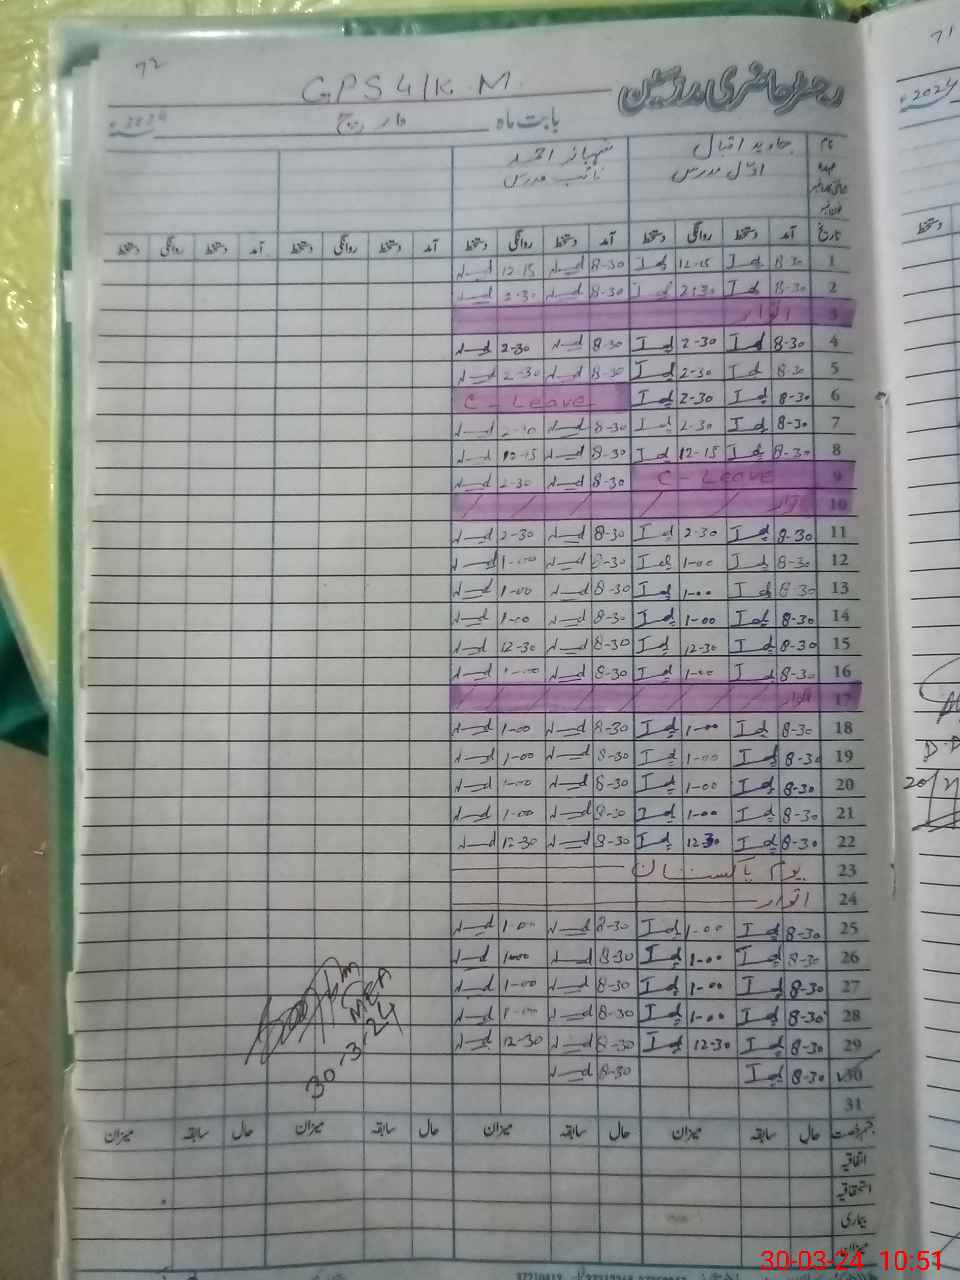 72
71
GPS 4/K.M. رجسٹر حاضری مدرسین
بابت ماہ مارچ 2024ء
2024ء
نام جاوید اقبال شہباز احمد
عہدہ اوّل مدرس نائب مدرس
تاریخ آمد دستخط روانگی دستخط آمد دستخط روانگی دستخط آمد دستخط روانگی دستخط آمد دستخط روانگی دستخط
دستخط
1 8-30 Id 12-15 Id 8-30 12-15
2 8-30 Id 2-30 Id 8-30 2-30
3 اتوار
4 8-30 Id 2-30 Id 8-30 2-30
5 8-30 Id 2-30 Id 8-30 2-30
6 8-30 Id 2-30 Id C - Leave
7 8-30 Id 2-30 Id 8-30 2-30
8 8-30 Id 12-15 Id 8-30 12-15
9 C - Leave 8-30 2-30
10 اتوار
11 8-30 Id 2-30 Id 8-30 2-30
12 8-30 Id 1-00 Id 8-30 1-00
13 8-30 Id 1-00 Id 8-30 1-00
14 8-30 Id 1-00 Id 8-30 1-00
15 8-30 Id 12-30 Id 8-30 12-30
16 8-30 Id 1-00 Id 8-30 1-00
17 اتوار
18 8-30 Id 1-00 Id 8-30 1-00
19 8-30 Id 1-00 Id 8-30 1-00
20 8-30 Id 1-00 Id 8-30 1-00
21 8-30 Id 1-00 Id 8-30 1-00
22 8-30 Id 12-30 Id 8-30 12-30
23 یوم پاکستان
24 اتوار
25 8-30 Id 1-00 Id 8-30 1-00
26 8-30 Id 1-00 Id 8-30 1-00
27 8-30 Id 1-00 Id 8-30 1-00
28 8-30 Id 1-00 Id 8-30 1-00
29 8-30 Id 12-30 Id 8-30 12-30
30 8-30 Id 8-30
31
MEA
30-3-24
حال سابقہ میزان حال سابقہ میزان حال سابقہ میزان حال سابقہ میزان
اتفاقیہ
استحقاقیہ
بیماری
میزان
30-03-24 10:51